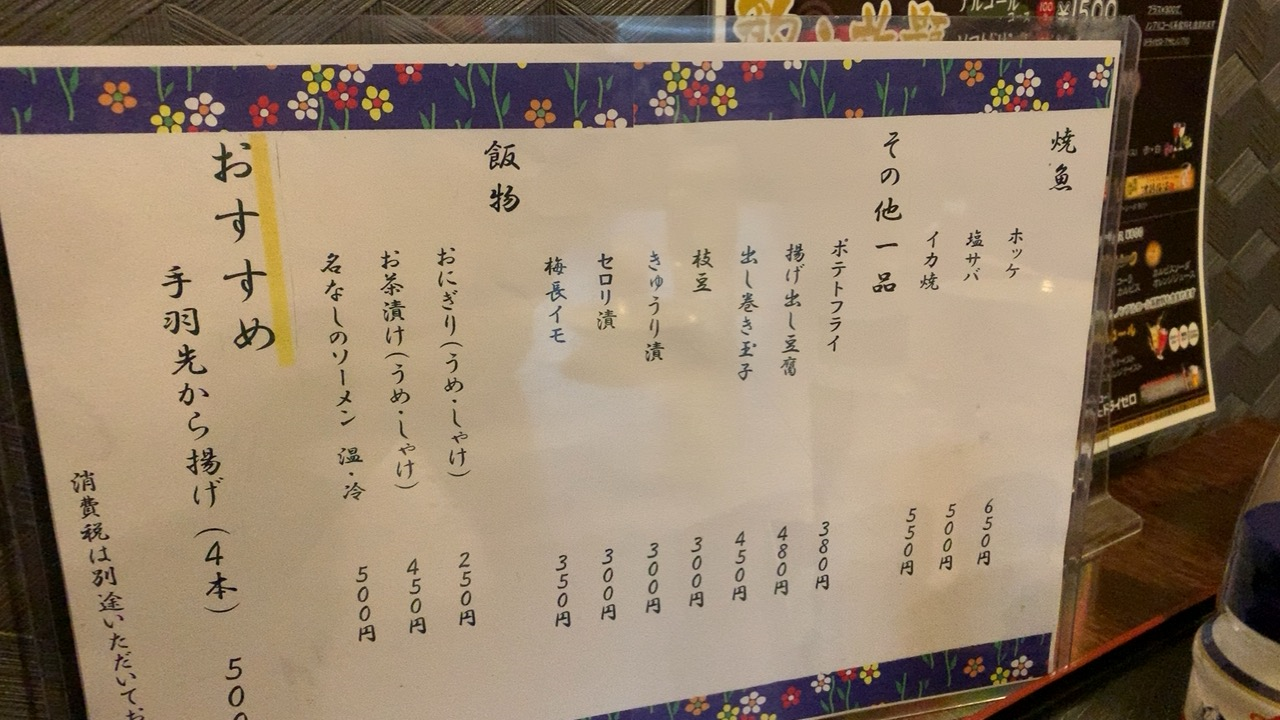 焼魚
ホッケ 650円
塩サバ 500円
イカ焼 550円
その他一品
ポテトフライ 380円
揚げ出し豆腐 480円
出し巻き玉子 450円
枝豆 300円
きゅうり漬 300円
セロリ漬 300円
梅長イモ 350円
飯物
おにぎり(うめ・しゃけ) 250円
お茶漬け(うめ・しゃけ) 450円
名なしのソーメン 温・冷 500円
おすすめ
手羽先から揚げ(4本) 500
消費税は別途いただいてお
アルコール
¥1500
ドライゼロ